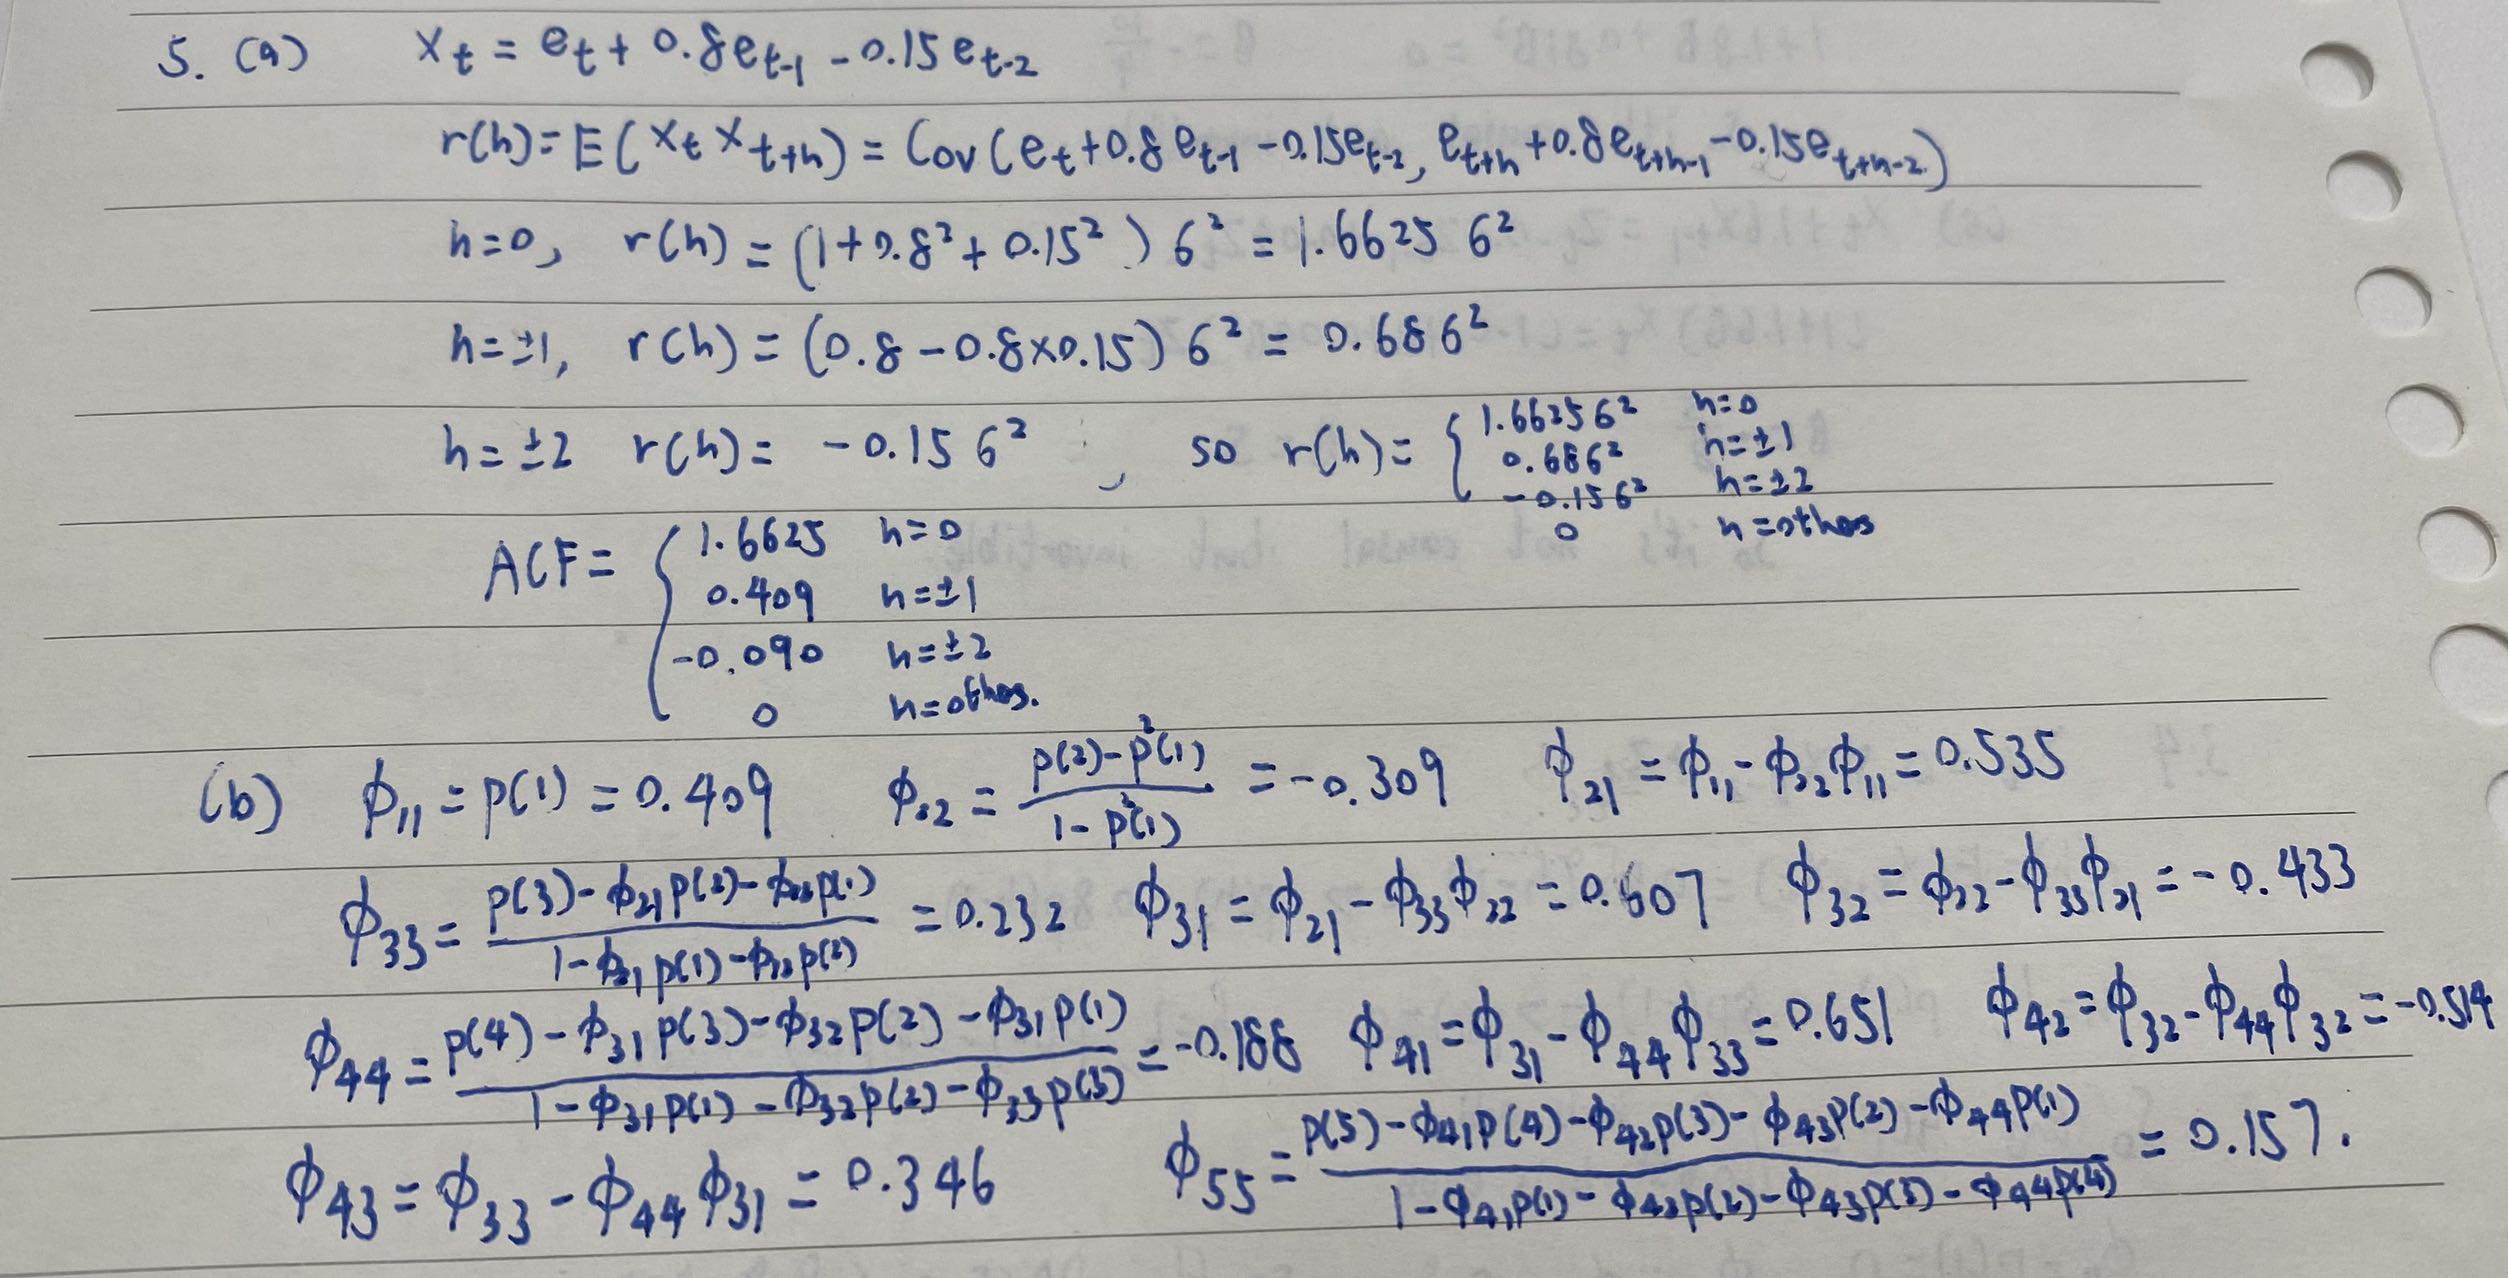 5. (a) Xt = et + 0.8et-1 - 0.15et-2
r(h) = E(Xt Xt+h) = Cov(et + 0.8et-1 - 0.15et-2, et+h + 0.8et+h-1 - 0.15et+h-2)
h=0, r(h) = (1+0.8²+0.15²)6² = 1.66256²
h=±1, r(h) = (0.8-0.8×0.15)6² = 0.686²
h=±2 r(h) = -0.156², so r(h) = { 1.66256² h=0
0.686² h=±1
-0.156² h=±2
0 h=others
ACF = { 1.6625 h=0
0.409 h=±1
-0.090 h=±2
0 h=others.
(b) ϕ11 = p(1) = 0.409 ϕ22 = (p(2)-p²(1))/(1-p²(1)) = -0.309 ϕ21 = ϕ11-ϕ22ϕ11 = 0.535
ϕ33 = (p(3)-ϕ21p(2)-ϕ22p(1))/(1-ϕ21p(1)-ϕ22p(2)) = 0.232 ϕ31 = ϕ21-ϕ33ϕ22 = 0.607 ϕ32 = ϕ22-ϕ33ϕ21 = -0.433
ϕ44 = (p(4)-ϕ31p(3)-ϕ32p(2)-ϕ31p(1))/(1-ϕ31p(1)-ϕ32p(2)-ϕ33p(3)) = -0.188 ϕ41 = ϕ31-ϕ44ϕ33 = 0.651 ϕ42 = ϕ32-ϕ44ϕ32 = -0.514
ϕ43 = ϕ33-ϕ44ϕ31 = 0.346 ϕ55 = (p(5)-ϕ41p(4)-ϕ42p(3)-ϕ43p(2)-ϕ44p(1))/(1-ϕ41p(1)-ϕ42p(2)-ϕ43p(3)-ϕ44p(4)) = 0.157.